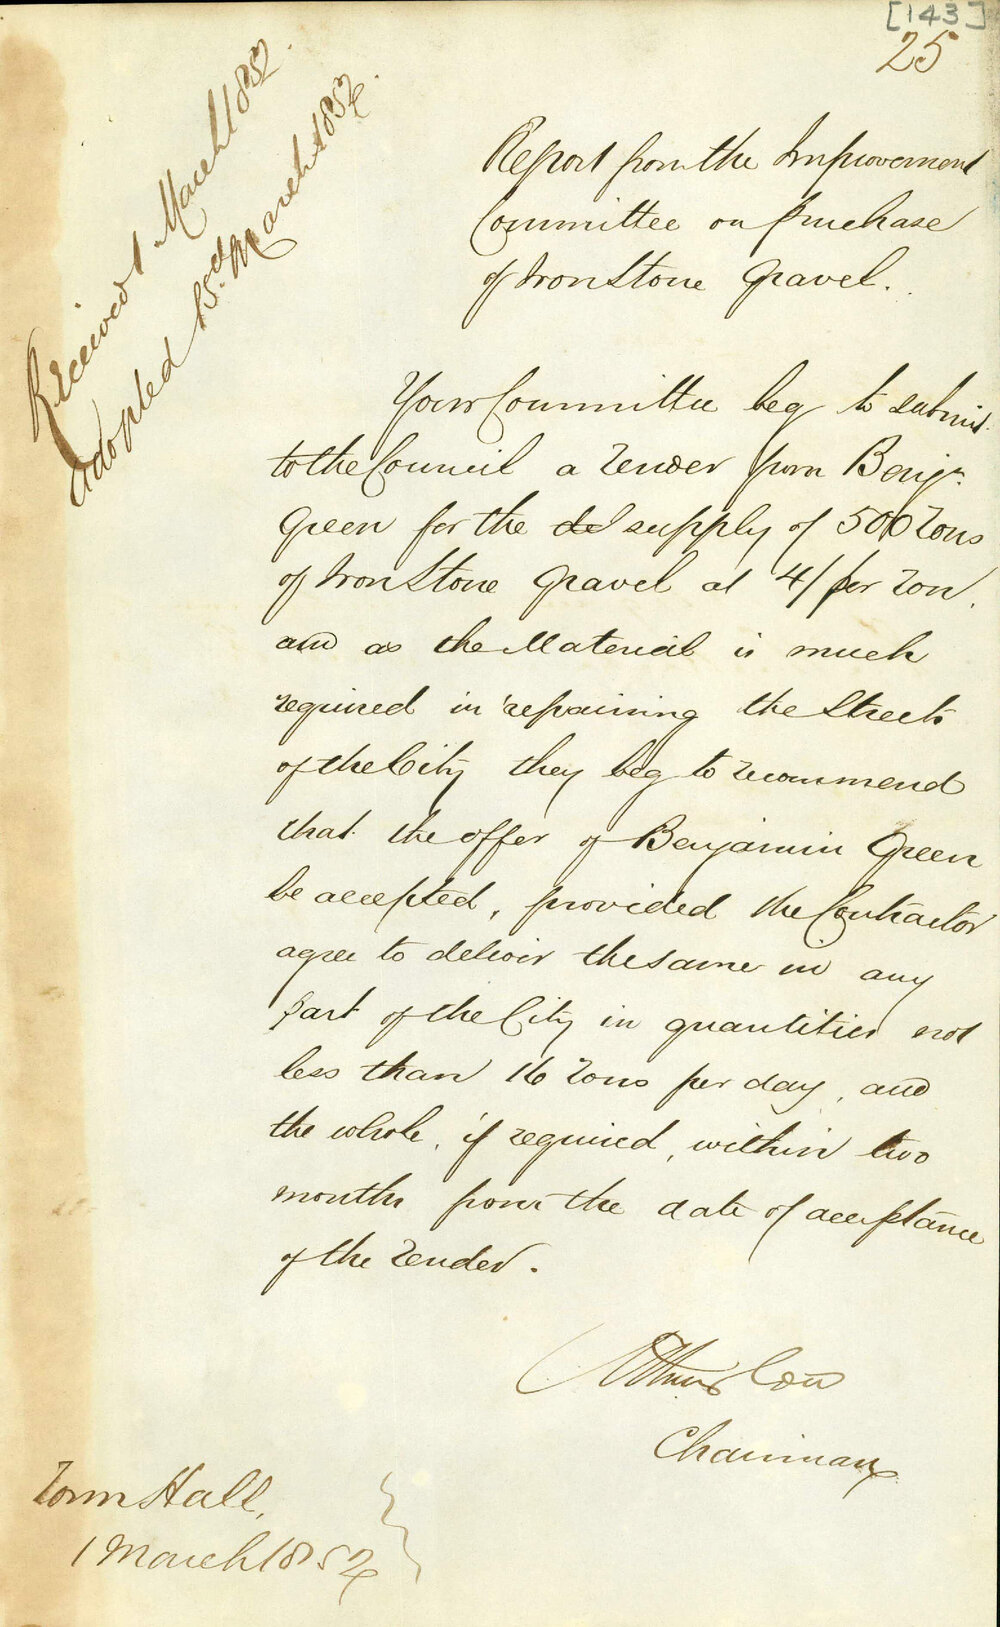 [143]
25
Received 1 March 1852.
Adopted 15th March 1852.
Report from the Improvement
Committee on purchase
of Iron Stone Gravel.
Your Committee beg to submit
to the Council a Tender from Benjn.
Green for the de supply of 500 Tons
of Iron Stone Gravel at 4/ per Ton.
and as the Material is much
required in repairing the Streets
of the City they beg to recommend
that the offer of Benjamin Green
be accepted, provided the Contractor
agree to deliver the same in any
part of the City in quantities not
less than 16 Tons per day, and
the whole, if required, within two
months from the date of acceptance
of the Tender.
Chairman
Town Hall,
1 March 1852